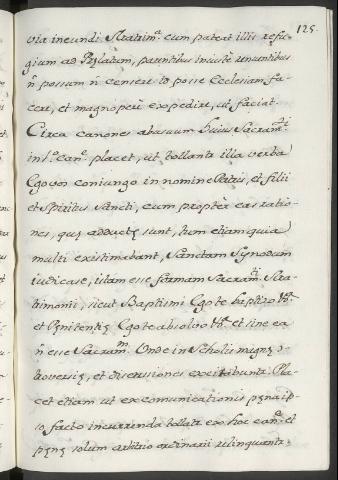 125.
via ineundi Matrim.º cum pateat illis refu-
gium ad Prȩlatum, parentibus iniustè renuentibus
ñ possum ñ censere id posse Ecclesiam fa-
cere, et magnoperè expedire, ut faciat.
Circa canones abusuum huius Sacram.ti
in p.º can.e placet, ut tollantur illa verba
Ego vos coniungo in nomine Patris, et filii
et Spiritus Sancti, cum proptèr eas ratio-
nes, quȩ adductȩ sunt, tum etiam quia
multi existimabunt, Sanctam Synodum
iudicasse, istam esse formam Sacram.ti Ma-
trimonii, sicut Baptismi Ego te baptizo &.
et Pȩnitentiȩ Ego te absolvo &. et sine ea
ñ esse Sacram.m Unde in Scholis magnȩ
troversiȩ, et dissensiones excitabuntur. Pla-
cet etiam ut excomunicationis pȩna ip-
so facto incurrenda tollatur ex hoc can.e et
pȩnȩ solum arbitrio ordinarii relinquantur